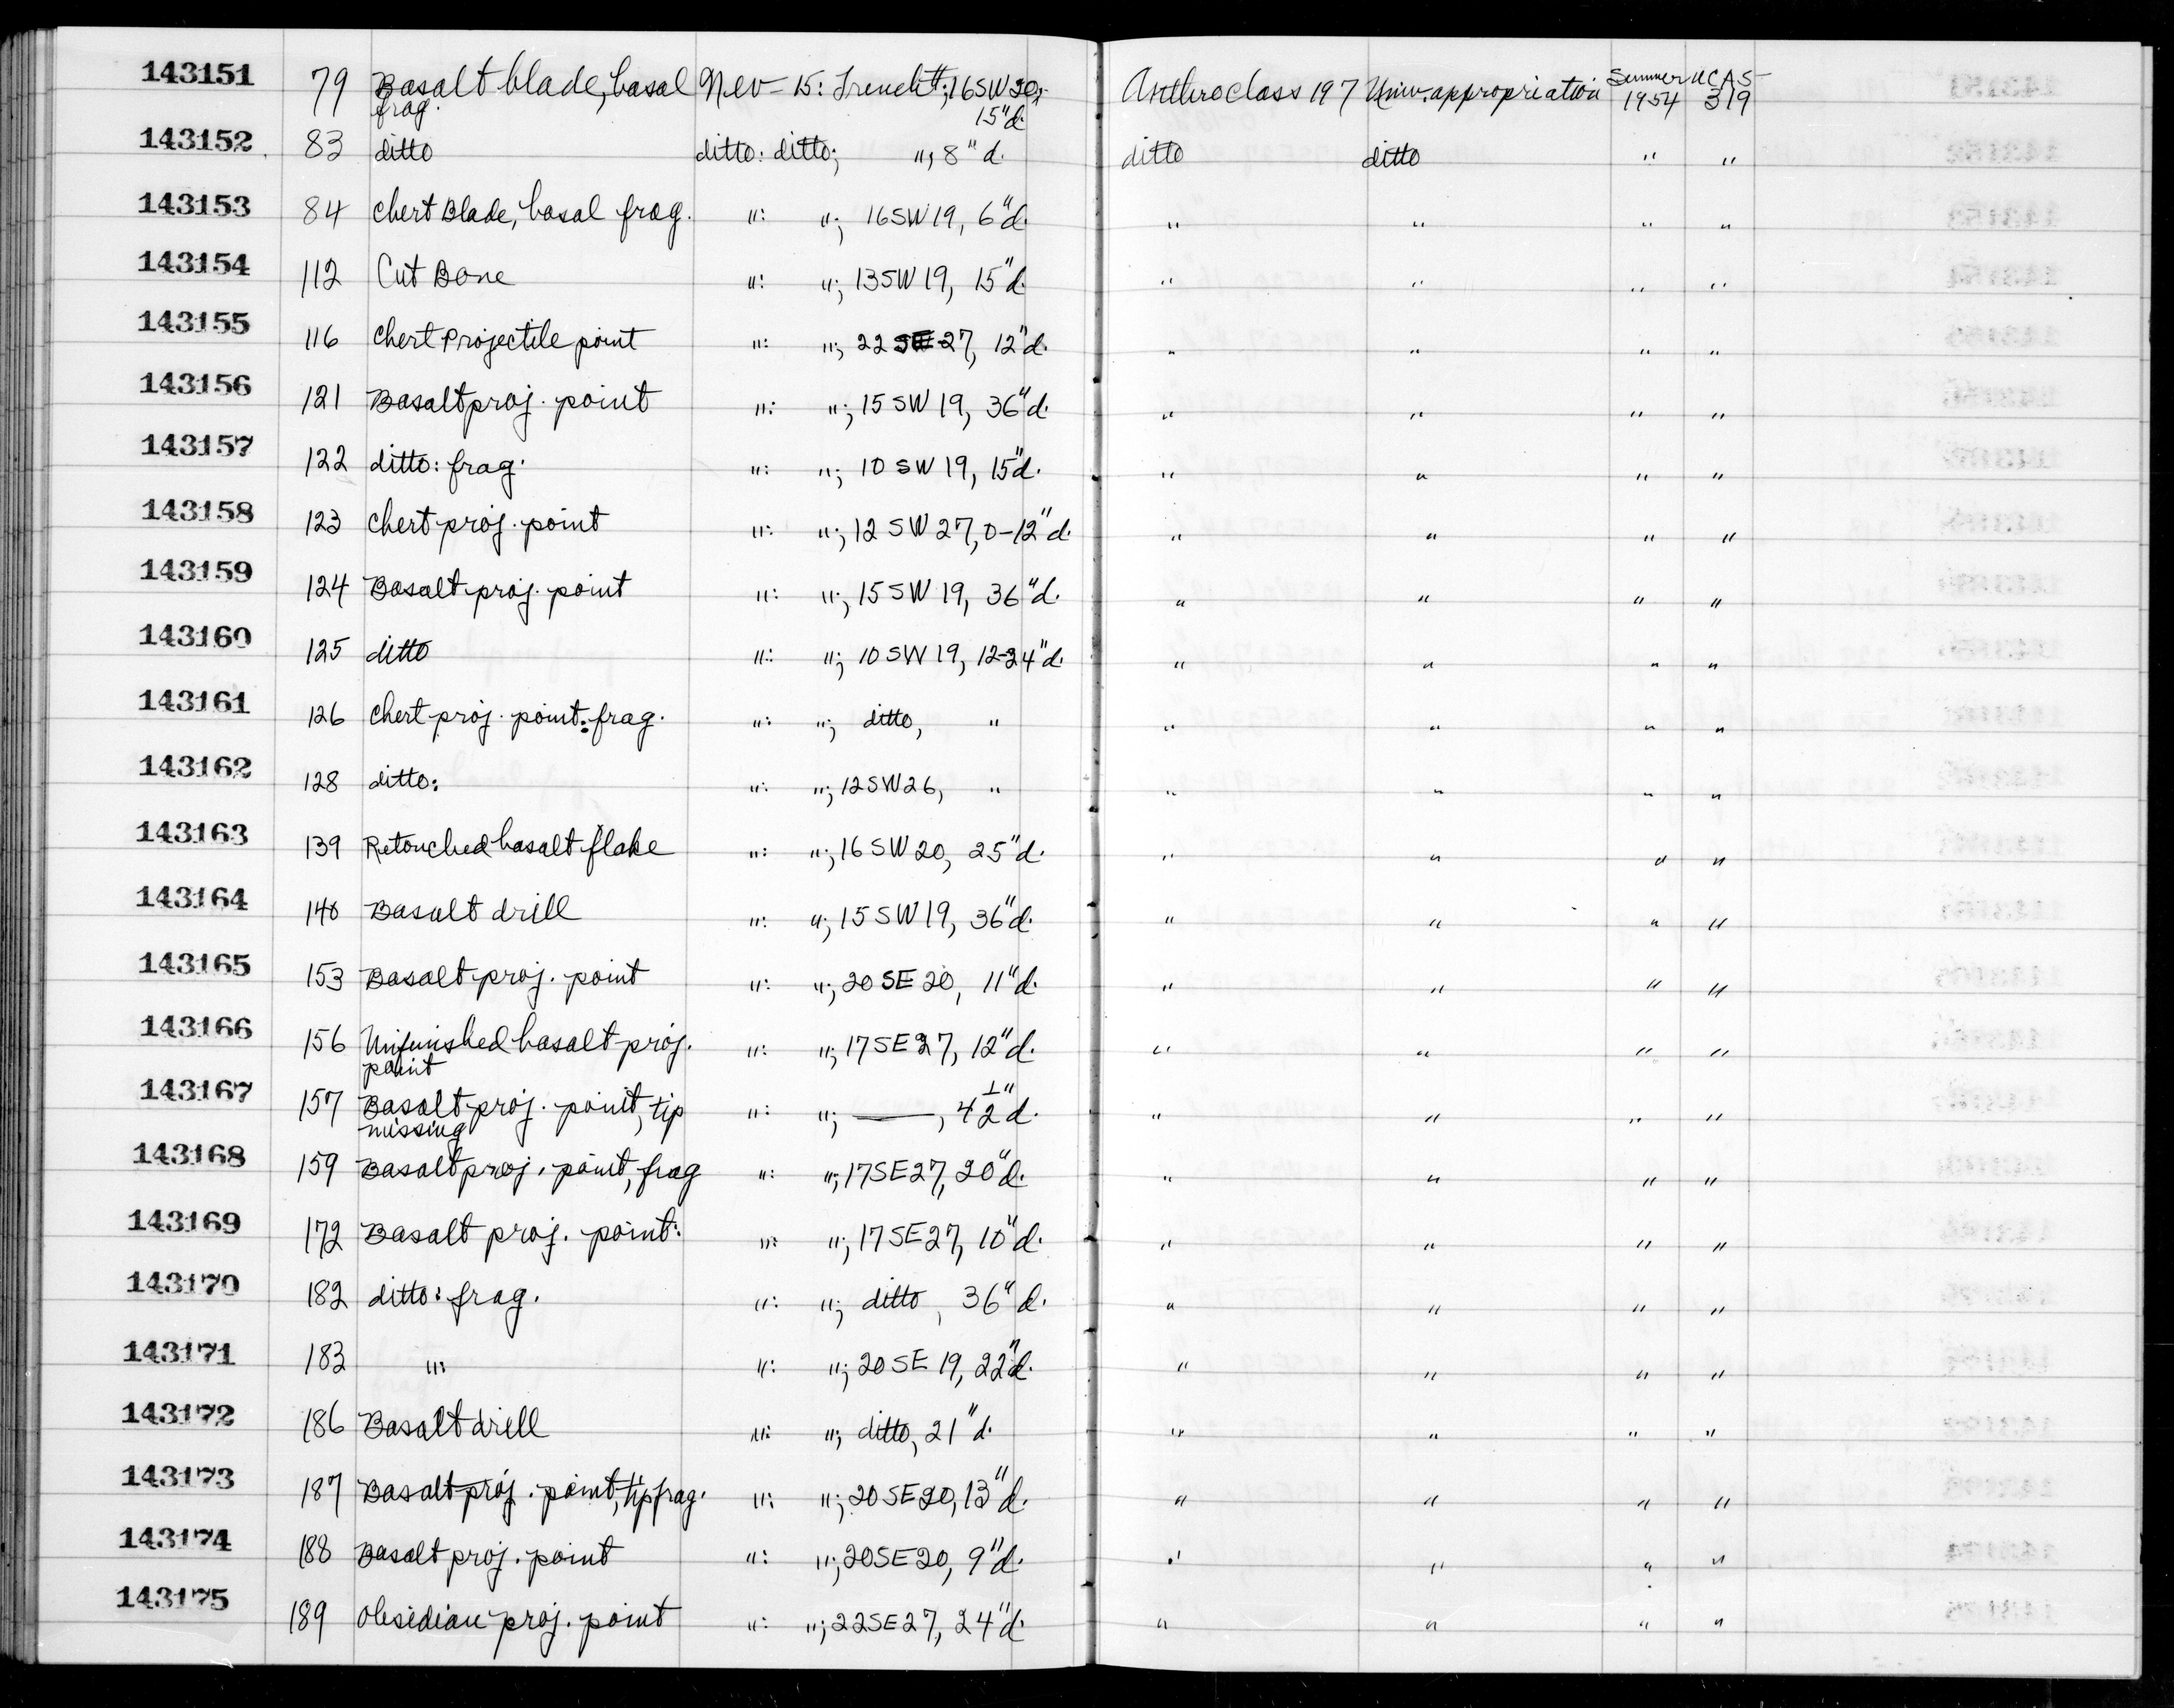 143151 79 Basalt blade, basal Nev-15: Trench#; 16SW20; Anthro class 197 Univ. appropriation Summer 1954 UCAS-319
frag. 15"d.
143152 83 ditto ditto: ditto; ", 8"d. ditto ditto " "
143153 84 Chert Blade, basal frag. ": "; 16SW19, 6"d. " " " "
143154 112 Cut Bone ": "; 13SW19, 15"d. " " " "
143155 116 Chert Projectile point ": "; 22SE27, 12"d. " " " "
143156 121 Basalt proj. point ": "; 15SW19, 36"d. " " " "
143157 122 ditto: frag. ": "; 10SW19, 15"d. " " " "
143158 123 Chert proj. point ": "; 12SW27, 0-12"d. " " " "
143159 124 Basalt proj. point ": "; 15SW19, 36"d. " " " "
143160 125 ditto ": "; 10SW19, 12-24"d. " " " "
143161 126 Chert proj. point: frag. ": "; ditto, " " " " "
143162 128 ditto: ": "; 12SW26, " " " " "
143163 139 Retouched basalt flake ": "; 16SW20, 25"d. " " " "
143164 140 Basalt drill ": "; 15SW19, 36"d. " " " "
143165 153 Basalt proj. point ": "; 20SE20, 11"d. " " " "
143166 156 Unfinished basalt proj. ": "; 17SE27, 12"d. " " " "
point
143167 157 Basalt proj. point, tip ": "; ——, 4½"d. " " " "
missing
143168 159 Basalt proj. point, frag ": "; 17SE27, 20"d. " " " "
143169 172 Basalt proj. point: ": "; 17SE27, 10"d. " " " "
143170 182 ditto: frag. ": "; ditto, 36"d. " " " "
143171 183 ": ": "; 20SE19, 22"d. " " " "
143172 186 Basalt drill ": "; ditto, 21"d. " " " "
143173 187 Basalt proj. point, tip frag. ": "; 20SE20, 13"d. " " " "
143174 188 Basalt proj. point ": "; 20SE20, 9"d. " " " "
143175 189 Obsidian proj. point ": "; 22SE27, 24"d. " " " "